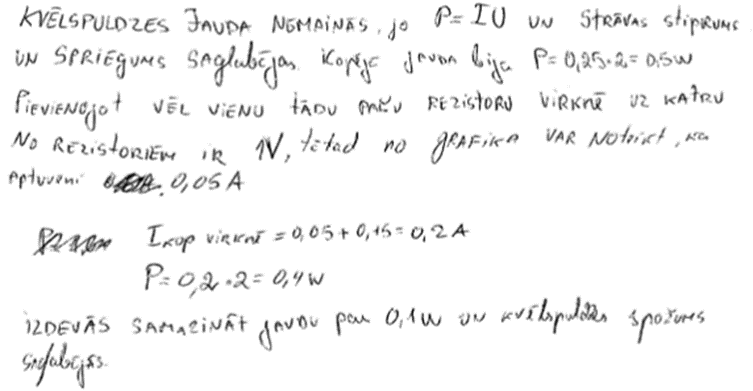 KVĒLSPULDZES JAUDA NEMAINĀS, jo P=IU UN STRĀVAS stiprums
UN SPRIEGUMS saglabājas. Kopējā jauda bija P=0,25·2=0,5W
Pievienojot VĒL VIENU TĀDU PAŠU REZISTORU VIRKNĒ UZ KATRU
NO REZISTORIEM IR 1V, tātad no GRAFIKA VAR Noteikt, ka
aptuveni 0,05 A
I kop virknē = 0,05 + 0,15 = 0,2 A
P = 0,2 · 2 = 0,4 W
IZDEVĀS SAMAZINĀT jaudu par 0,1W UN kvēlspuldzes spožums
saglabājās.